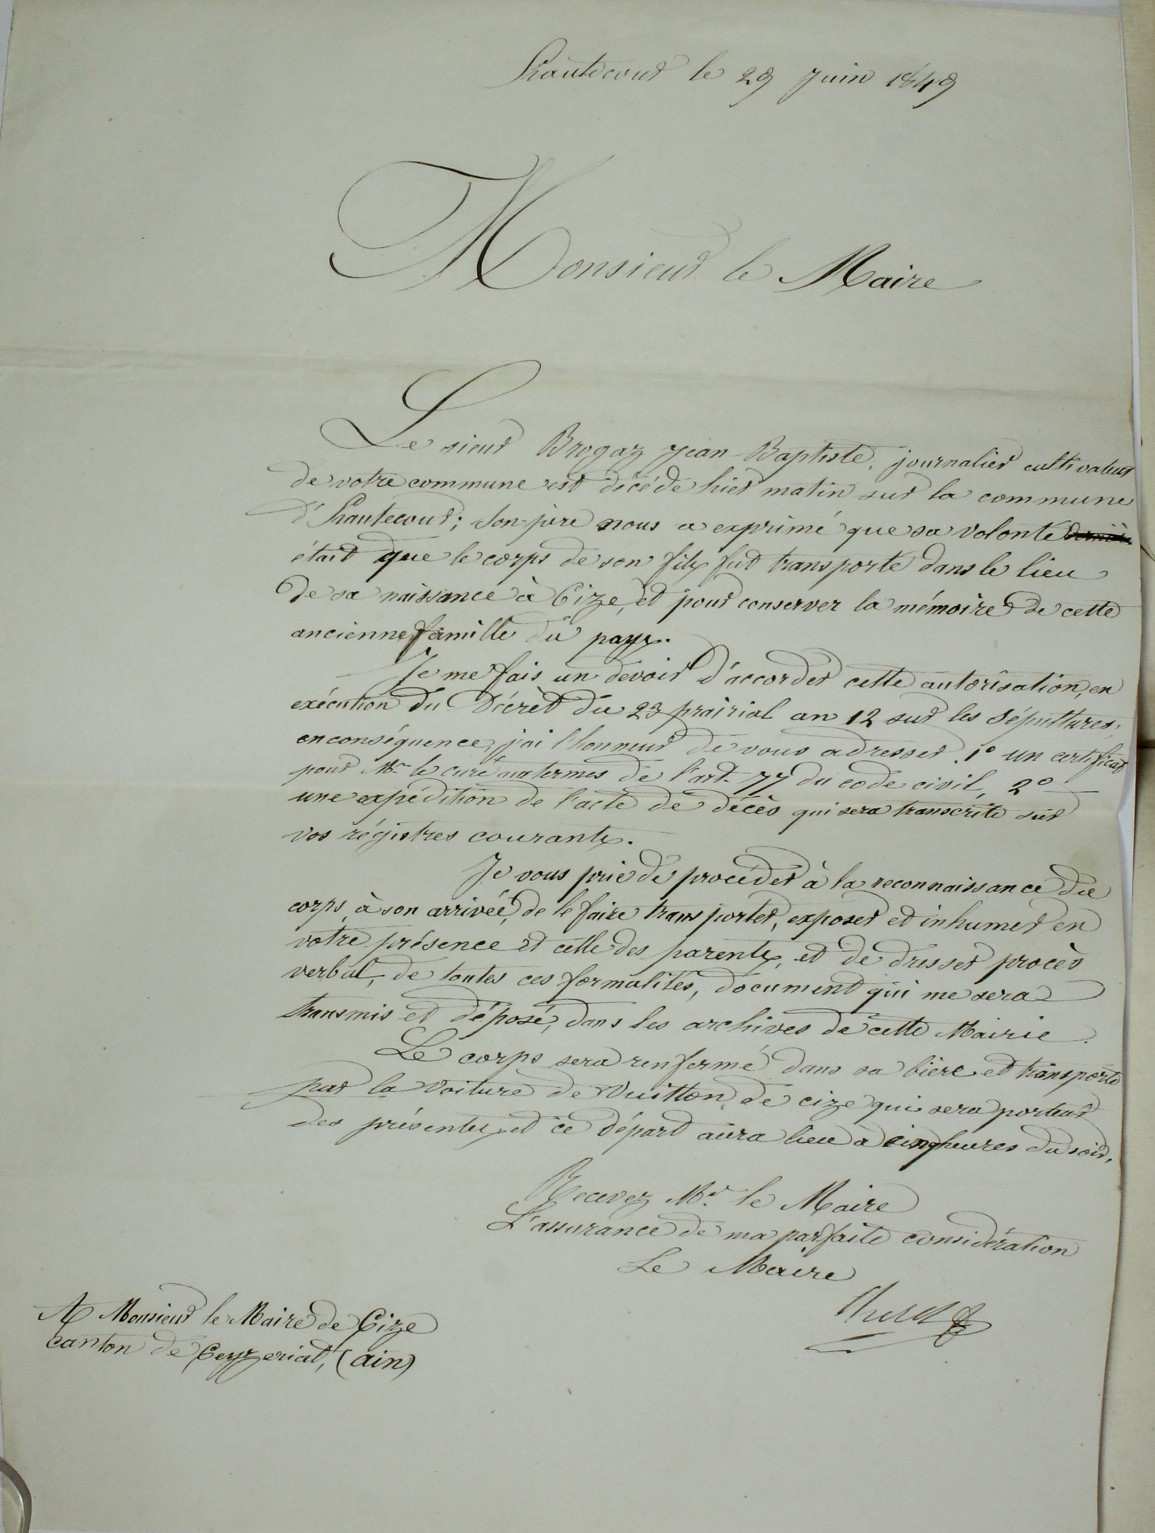 hautecour le 29 juin 1849
Monsieur le Maire
Le sieur Brogaz jean Baptiste, journalier cultivateur
de votre commune est décédé hier matin sur la commune
d'hautecour; son père nous a exprimé que sa volonté
était que le corps de son fils fut transporté dans le lieu
de sa naissance à Cize, et pour conserver la mémoire de cette
ancienne famille du pays.
Je me fais un devoir d'accorder cette autorisation, en
exécution du Décrèt du 23 prairial an 12 sur les sépultures;
en conséquence, j'ai l'honneur de vous adresser, 1º un certificat
pour Mr. le curé aux termes de l'art. 77 du code civil, 2º
une expédition de l'acte de décès qui sera transcrite sur
vos régistres courants.
Je vous prie de procéder à la reconnaissance du
corps, à son arrivée, de le faire transporter, exposer et inhumer en
votre présence et celle des parents, et de dresser procès
verbal, de toutes ces formalités, document qui me sera
transmis et déposé, dans les archives de cette Mairie.
Le corps sera renfermé dans sa bière et transporté
par la voiture de Vuitton, de cize qui sera porteur
des présentes, et ce départ aura lieu a cinq heures du soir.
Recevez Mr. le Maire
L'assurance de ma parfaite considération
Le Maire
A Monsieur le Maire de Cize
canton de Ceyzeriat, (ain)